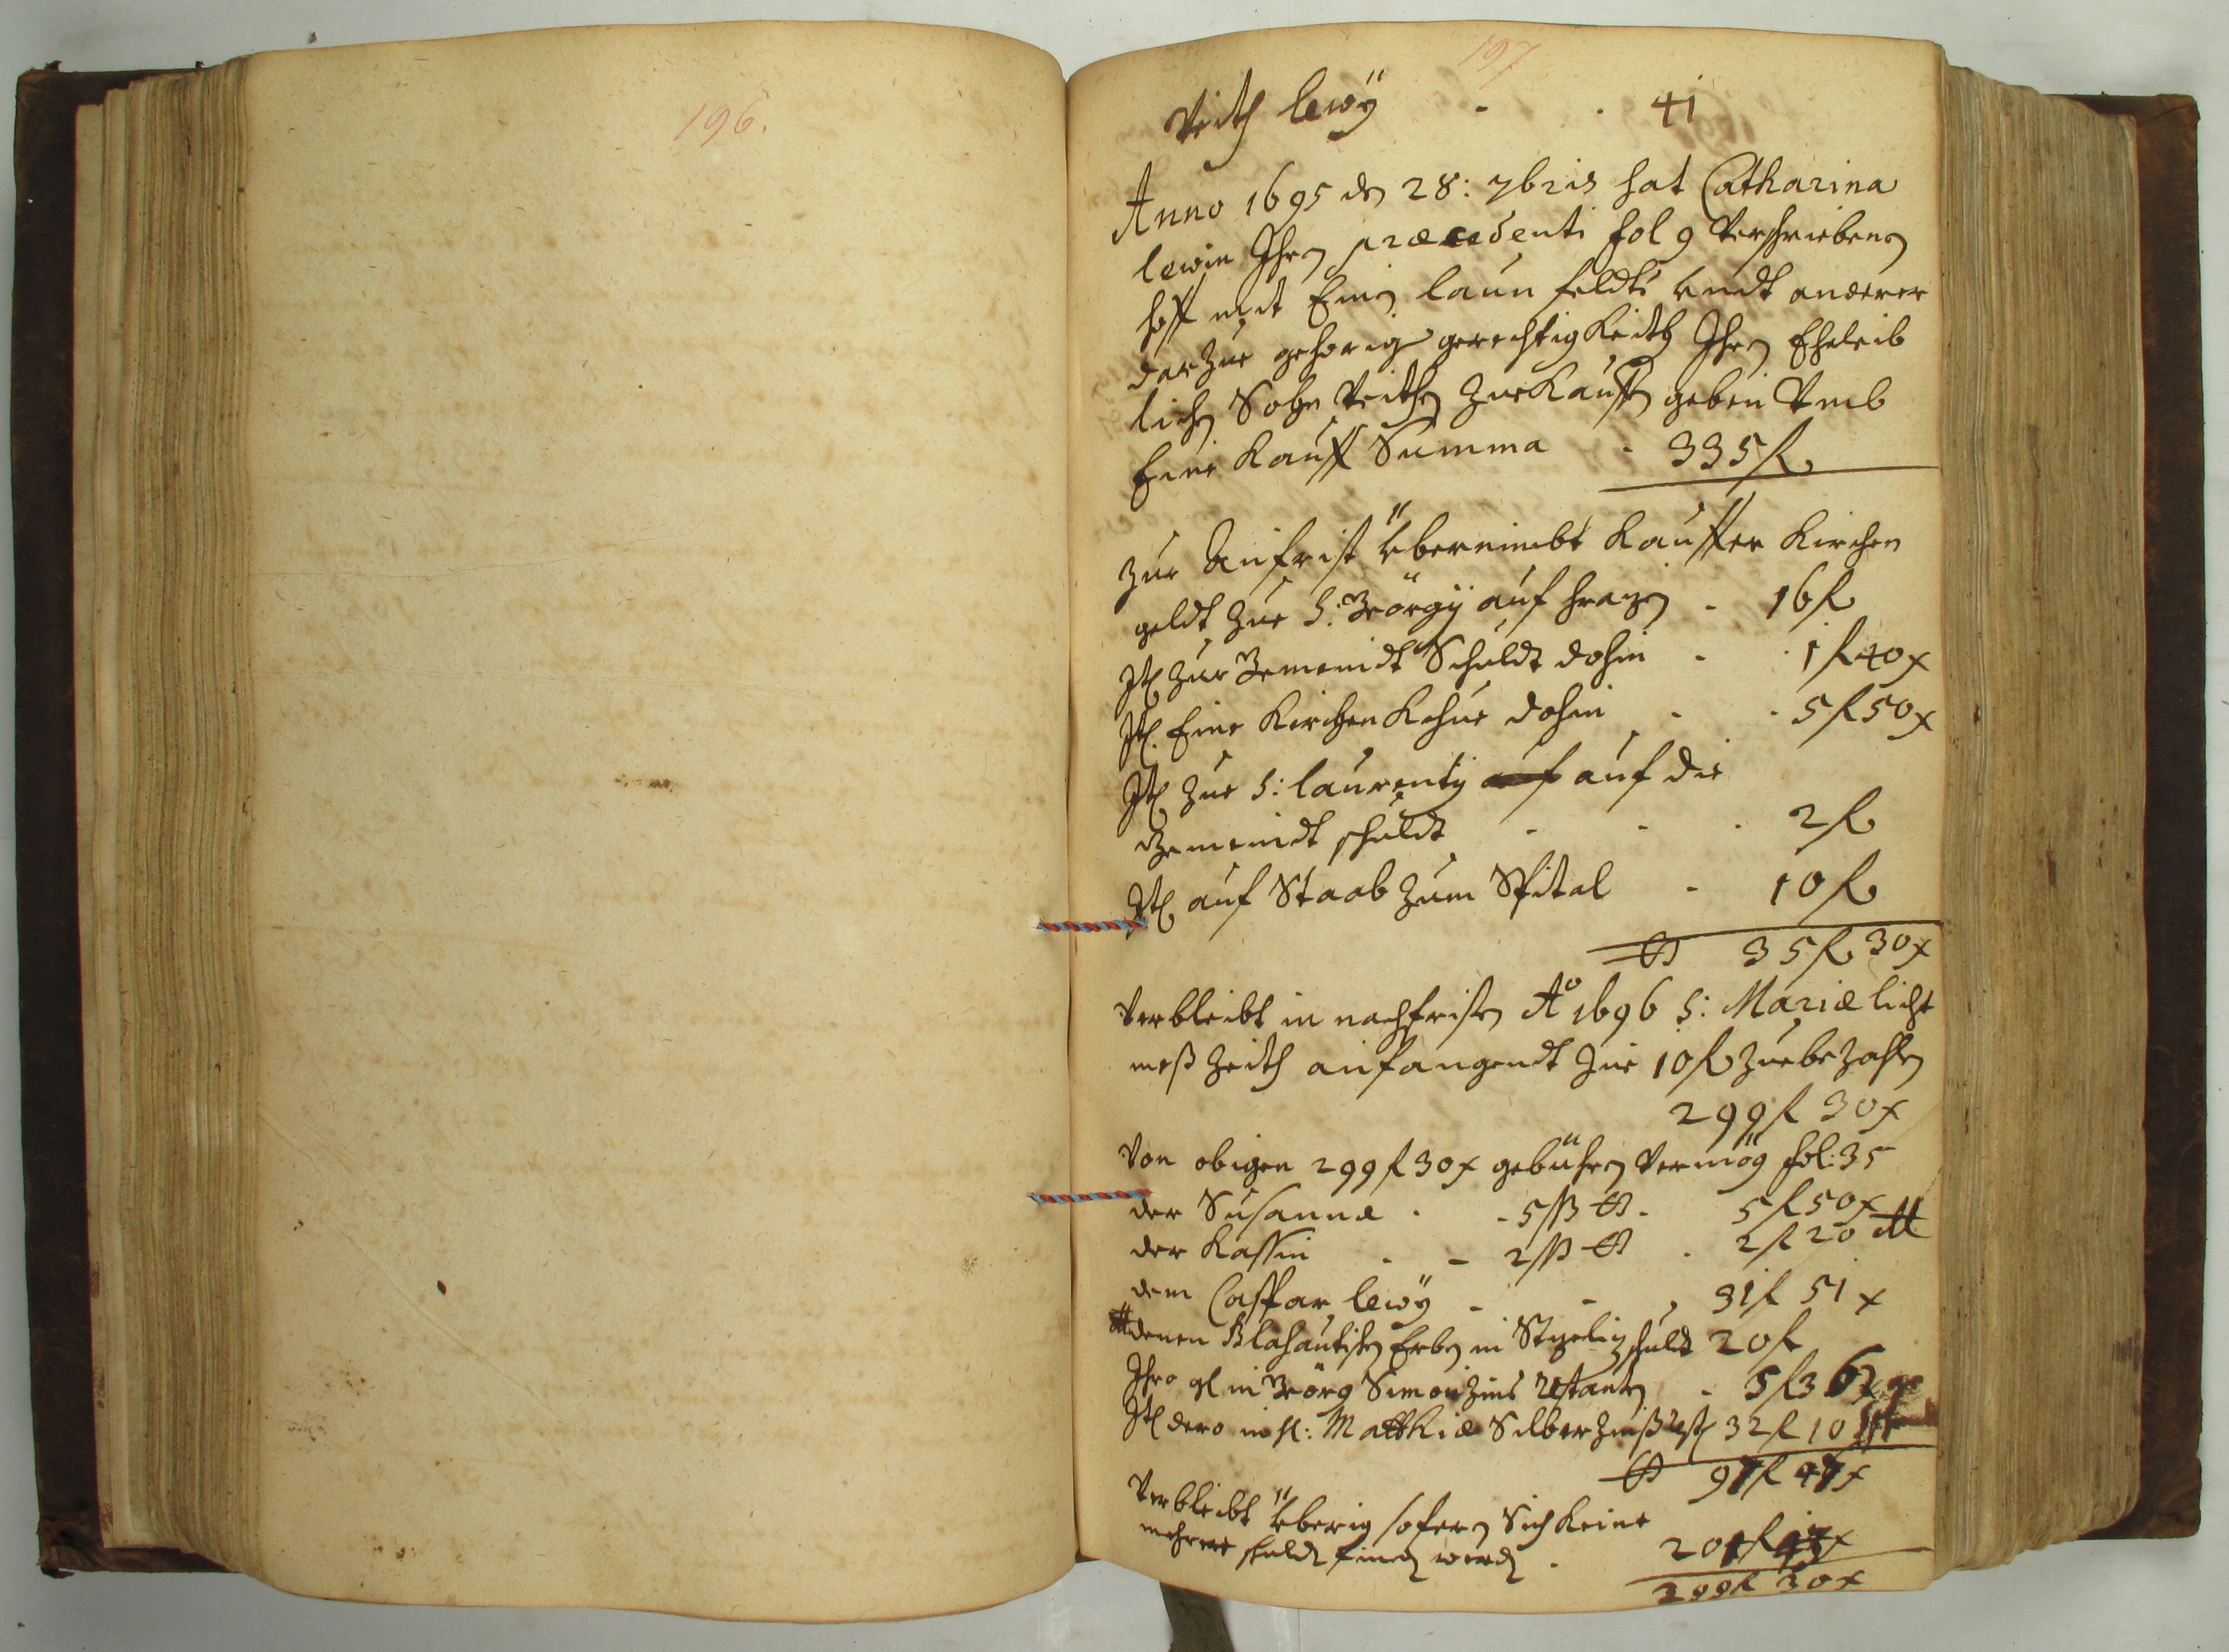 196.
197
Veith Lewÿ - . 41
Anno 1695 den 28: 7bris hat Catharina
Lewin Ihren præcedenti fol 9 verschriebenen
hoff mit Einen laun feldts undt anderer
darzue gehorig gerechtigkeith Ihren Eheleib
lichen Sohn Veithen zue Kauffen geben Vmb
Eine Kauff Summa - 335 fl
zur Anfrist übernimbt Kauffer Kirchen
geldt zue S: Geörgÿ auf - 16 fl
Itl zur Gemeindt Schuldt dohin - . 1 fl 40 x
Itl. Eine Kirchen Kuhe dohin - . 5 fl 50 x
Itl zue S: Laurentÿ auf die
Gemeindt schuldt - - . 2 fl
Itl auf Staab zum Spital - 10 fl
35 fl 30 x
Verbleibt in nachfristen Ao 1696 S: Mariæ licht
meß Zeith anfangendt zue 10 fl zue bezahlen
299 fl 30 x
Von obigen 299 fl 30 x gebühren vermög fol: 35
der Susanna . - 5 ß - 5 fl 50 x
der - - 2 ß . 2 fl 20
dem Caspar Lewÿ - - . 31 fl 51 x
denen Erben in schuldt 20 fl
Ihro gl in Geörg Simon Zins restanten - 5 fl 36 x
Itl dero in fl: Matthiæ Silberzinß rest 32 fl 10
97 fl 47 x
Verbleibt überig sofern Sich Keine
mehrere schulden finden werden . 201 fl 43 x
299 fl 30 x